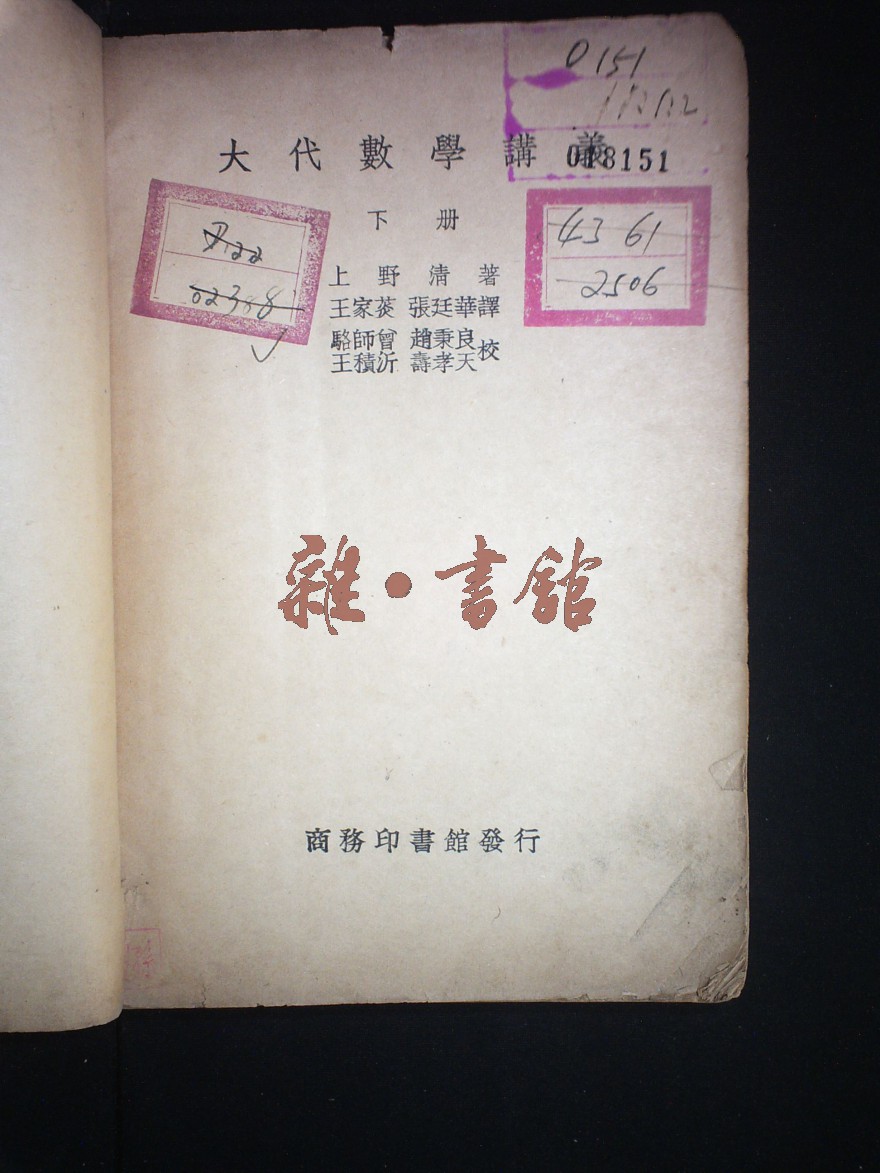 0151
大代數學講義
018151
下册
D.22
02388
4361
2506
上野清著
王家菼 張廷華譯
駱師曾 趙秉良
王積沂 壽孝天校
雜·書館
商務印書館發行